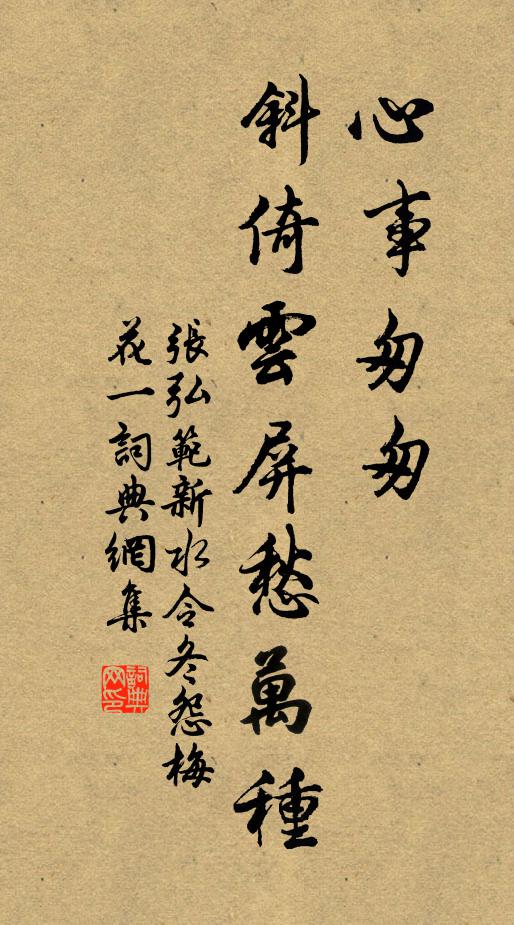 心事匆匆
斜倚雲屏愁萬種
張弘範新水令冬怨梅
花一詞典網集
詞典
网印